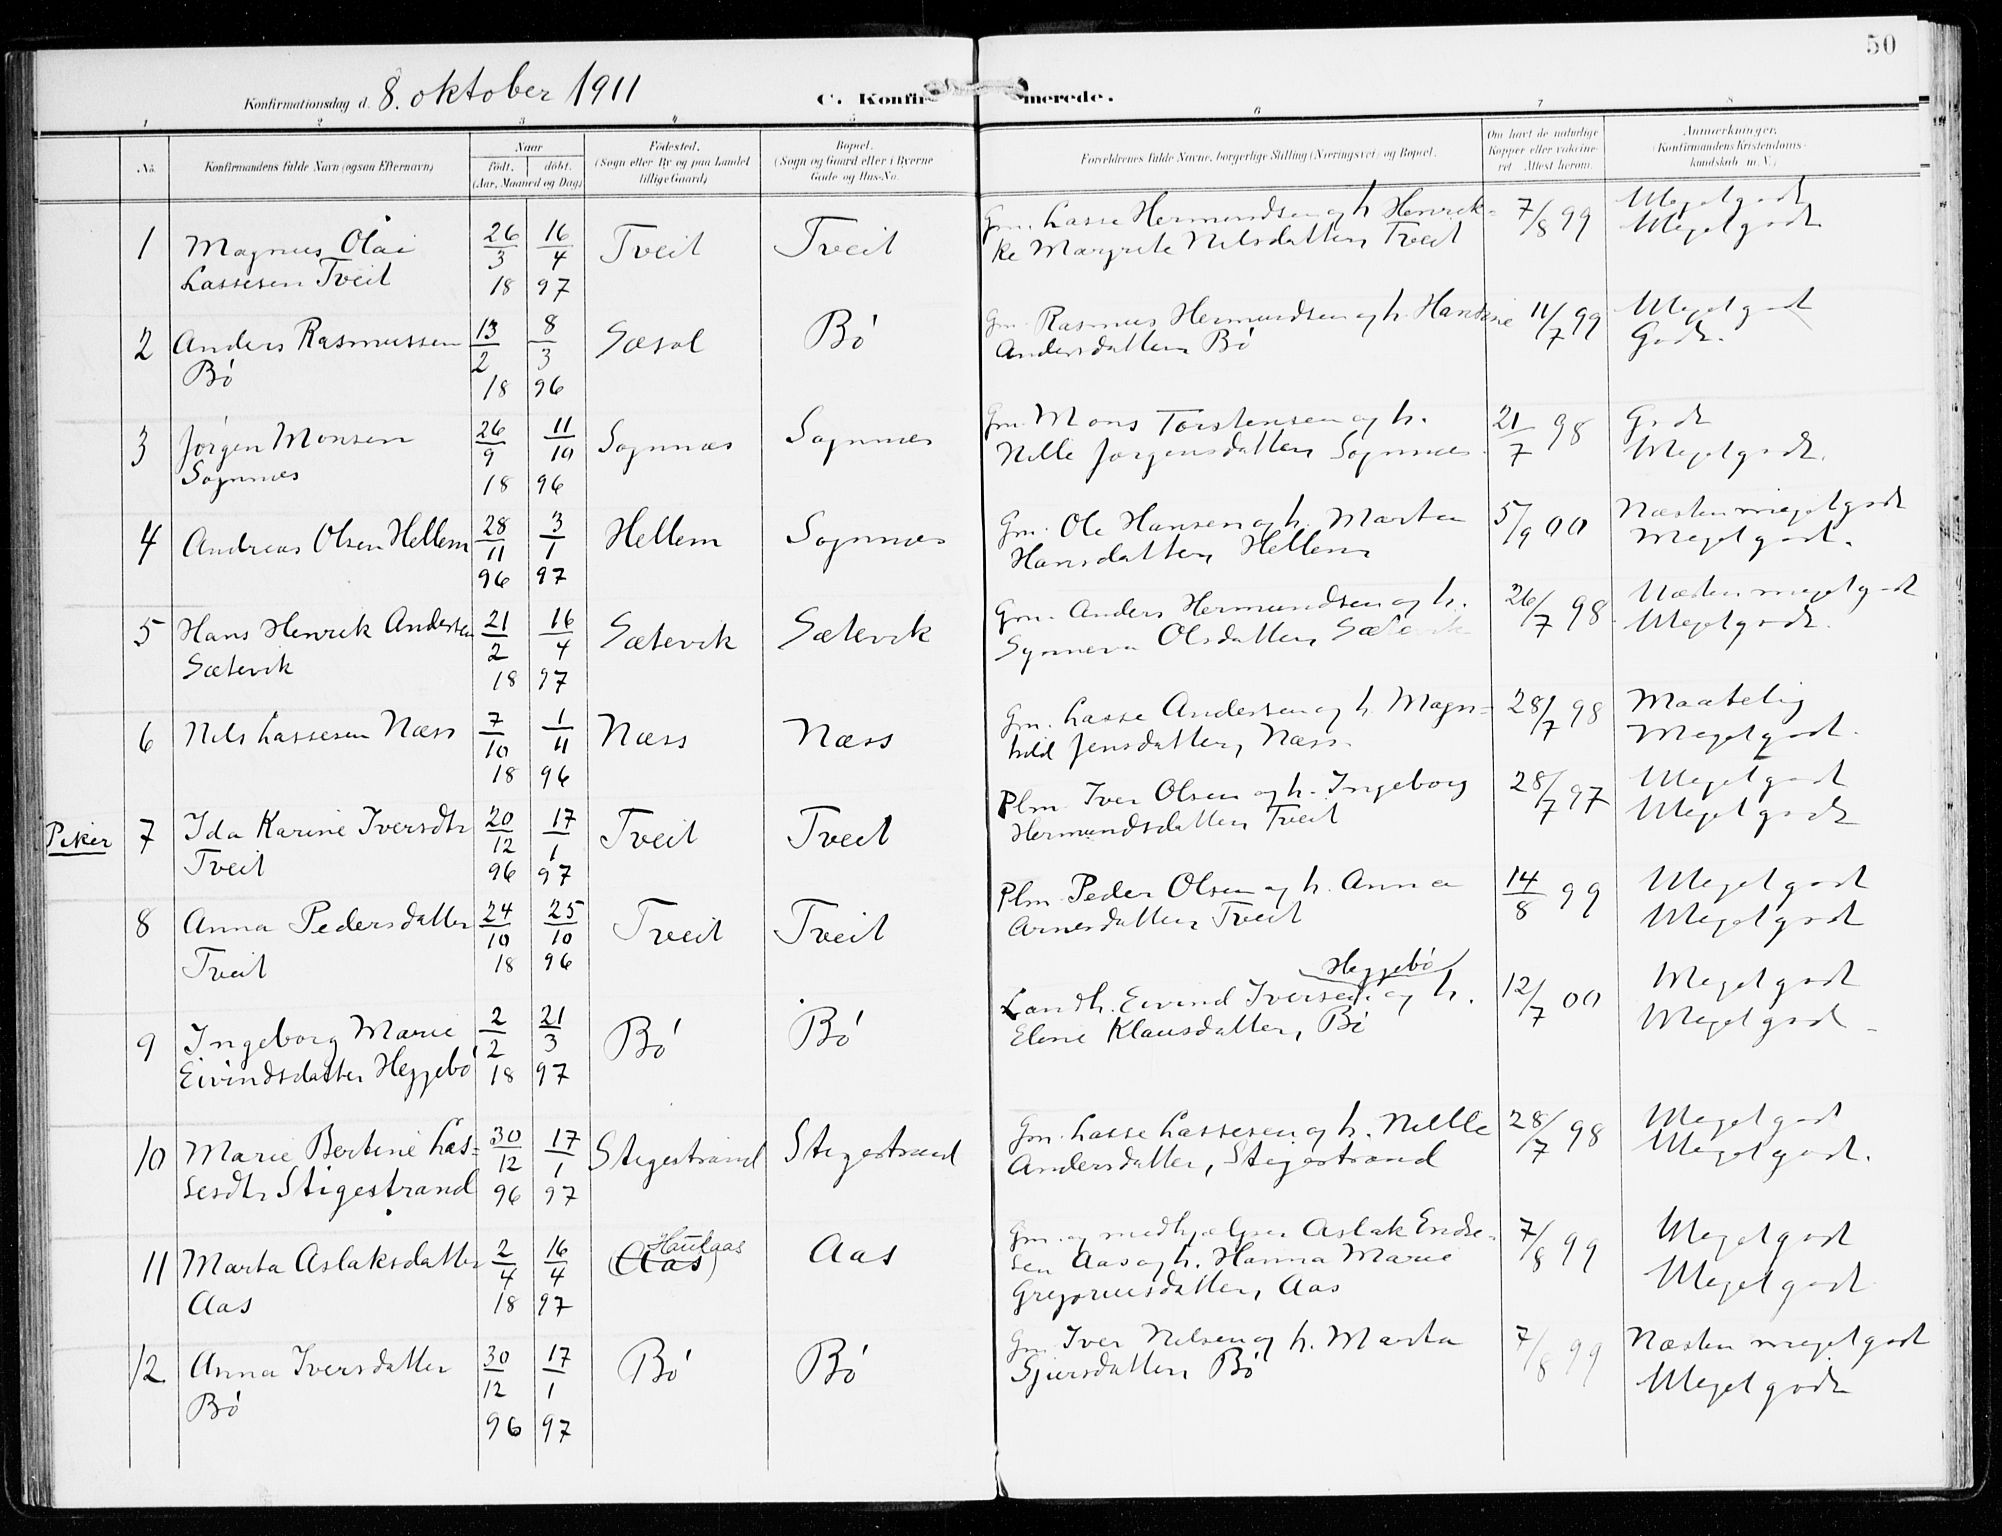 50
Konfirmationsdag d. 8. oktober 1911 C. Konfirmerede.
1 2 3 4 5 6 7 8
No. Konfirmandens fulde Navn (ogsaa Efternavn) Naar født. døbt. (Aar, Maaned og Dag) Fødested. (Sogn eller By og paa Landet tillige Gaard) Bopæl. (Sogn og Gaard eller i Byerne Gade og Hus-No. Forældrenes fulde Navne, borgerlige Stilling (Næringsvei) og Bopæl. Om havt de naturlige Kopper eller vaccineret Attest herom. Anmærkninger, (Konfirmandens Kristendomskundskab m. V.)
1 Magnus Olai 26/3 16/4 Tveit Tveit Gm. Lasse Hermundsen og h. Henrik= 7/8 99 Meget godt
Lassesen Tveit 18 97 ke Margrete Nilsdatter, Tveit Meget godt
2 Anders Rasmussen 13/2 8/3 Sæsol Bö Gm. Rasmus Hermundsen og h. Hansine 11/7 99 Meget godt
Bö 18 96 Andersdatter, Bö Godt.
3 Jørgen Monsen 26/9 11/10 Sognnæs Sognnæs Gm. Mons Torstensen og h. 21/7 98 Godt
Sognnæs 18 96 Nille Jørgensdatter, Sognnæs Meget godt.
4 Andreas Olsen Hellem 28/11 3/1 Hellem Sognnæs Gm. Ole Hansen og h. Marta 5/9 00 Næsten meget godt
96 97 Hansdatter, Hellem Meget godt.
5 Hans Henrik Andersen 21/2 16/4 Sætevik Sætevik Gm. Anders Hermundsen og h. 26/7 98 Næsten meget godt
Sætevik 18 97 Synneva Olsdatter, Sætevik Meget godt.
6 Nils Lassesen Næss 7/10 1/11 Næss Næss Gm. Lasse Andersen og h. Magn= 28/7 98 Maatelig
18 96 hild Jensdatter, Næss. Meget godt.
Piker 7 Ida Karine Iversdtr 20/12 17/1 Tveit Tveit Plm. Iver Olsen og h. Ingeborg 28/7 97 Meget godt
Tveit 96 97 Hermundsdatter, Tveit Meget godt
8 Anna Pedersdatter 24/10 25/10 Tveit Tveit Plm. Peder Olsen og h. Anna 14/8 99 Meget godt
Tveit 18 96 Arnesdatter, Tveit Meget godt
9 Ingeborg Marie 2/2 21/3 Bö Bö Landh. Eivind Iversen Heggebö og h. 12/7 00 Meget godt
Eivindsdatter Heggebö 18 97 Eline Klausdatter, Bö Meget godt
10 Marie Bertine Las= 30/12 17/1 Stigestrand Stigestrand Gm. Lasse Lassesen og h. Nille 28/7 98 Meget godt
sesdtr Stigestrand 96 97 Andersdatter, Stigestrand Meget godt.
11 Marta Aslaksdatter 2/4 16/4 (Aas) Haukaas Aas Gm. og medhjælper Aslak Endre= 7/8 99 Meget godt
Aas 18 97 sen Aas og h. Hanna Marie Meget godt
Gregoriusdatter, Aas
12 Anna Iversdatter 30/12 17/1 Bö Bö Gm. Iver Nilsen og h. Marta 7/8 99 Næsten meget godt
Bö 96 97 Sjursdatter, Bö Meget godt